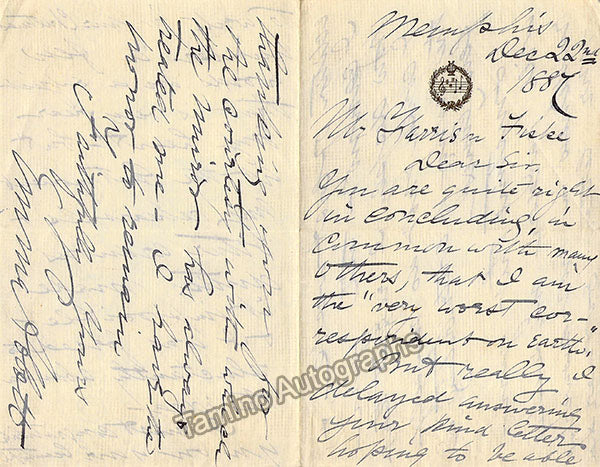 Memphis
Dec 22nd
1887
Mr Harrison Fiske
Dear Sir.
You are quite right
in concluding, in
common with many
others, that I am
the "very worst cor-
respondent on Earth,"
But really I
delayed answering
your kind letter
hoping to be able
Thanking you for
the courtesy with which
the Mirror has always
treated one - I have the
honor to remain
Faithfully Yours
Emma Abbott
Taming Autographs